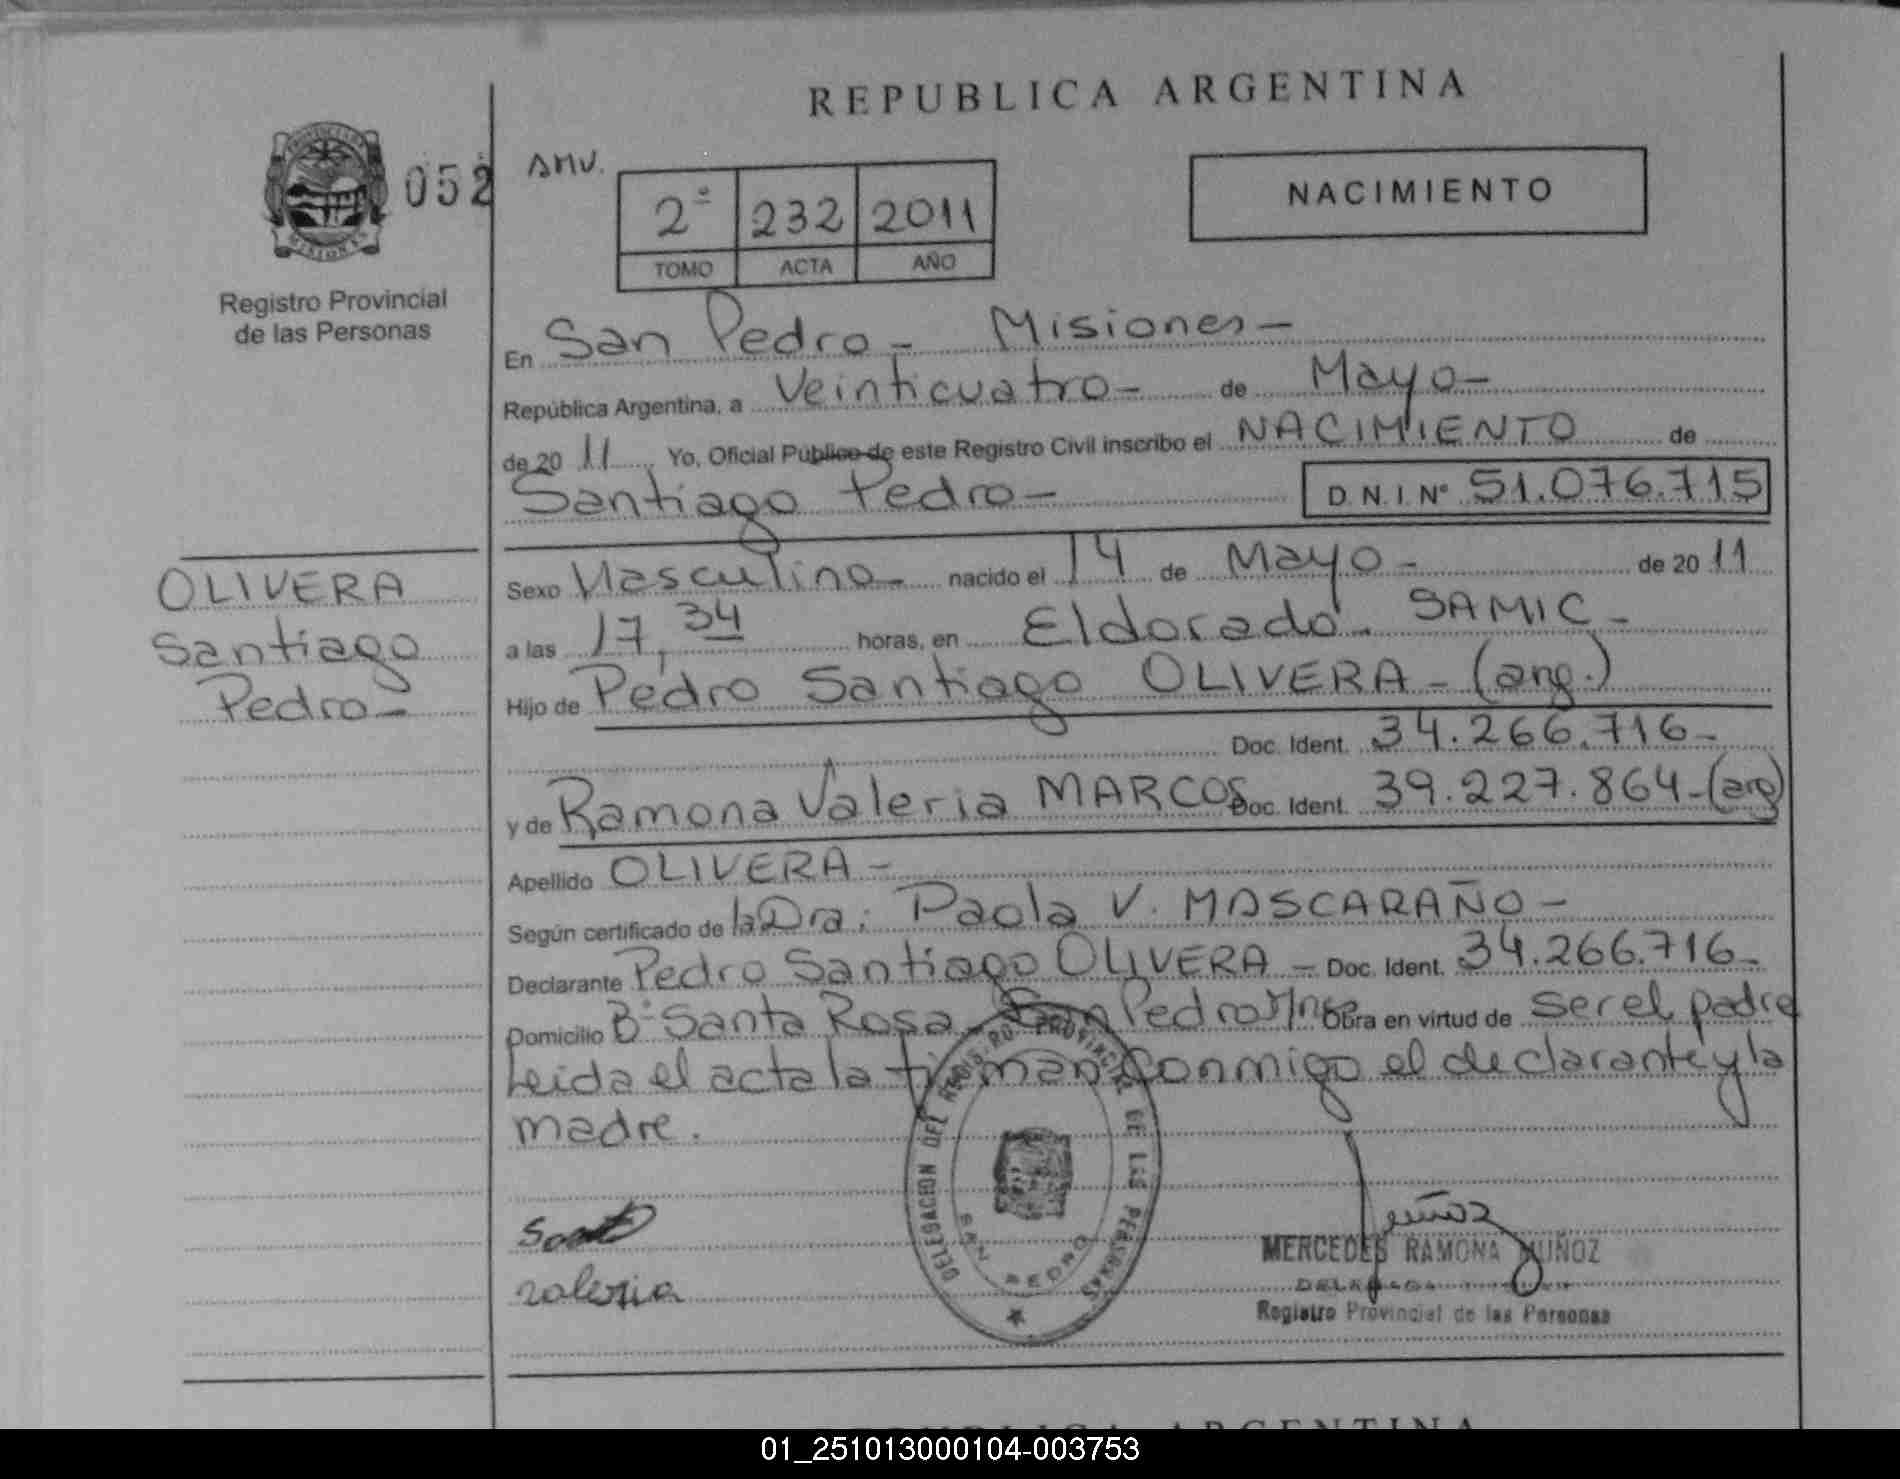 REPUBLICA ARGENTINA
PROVINCIA DE
MISIONES
052
AMV.
2º 232 2011
TOMO ACTA AÑO
NACIMIENTO
Registro Provincial
de las Personas
En San Pedro - Misiones -
República Argentina, a Veinticuatro - de Mayo -
de 20 11 Yo, Oficial Público de este Registro Civil inscribo el NACIMIENTO de
Santiago Pedro - D.N.I. Nº 51.076.715
OLIVERA
Santiago
Pedro -
Sexo Masculino - nacido el 14 de Mayo - de 20 11
a las 17, 34 horas, en Eldorado - SAMIC -
Hijo de Pedro Santiago OLIVERA - (arg.)
Doc. Ident. 34.266.716 -
y de Ramona Valeria MARCOS Doc. Ident. 39.227.864 - (arg)
Apellido OLIVERA -
Según certificado de la Dra: Paola V. MASCARAÑO -
Declarante Pedro Santiago OLIVERA - Doc. Ident. 34.266.716 -
Domicilio Bº Santa Rosa - San Pedro Mnes Obra en virtud de ser el padre
Leida el acta la firman conmigo el declarante y la
madre.
DELEGACION DEL REGISTRO PROVINCIAL DE LAS PERSONAS
SAN PEDRO
Valeria
Muñoz
MERCEDES RAMONA MUÑOZ
DELEGADA
Registro Provincial de las Personas
REPUBLICA ARGENTINA
01_251013000104-003753